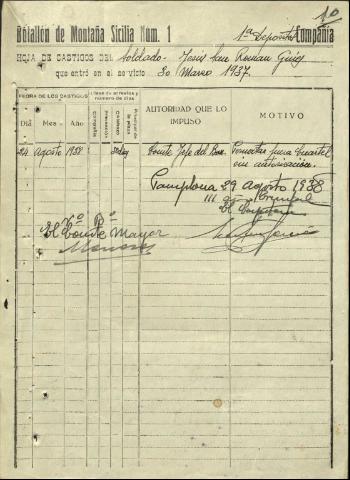 10
Batallón de Montaña Sicilia Núm. 1 1ª Depósito Compañía
HOJA DE CASTIGOS DEL Soldado Jesús San Roman
que entró en el servicio 30 Marzo 1937.
FECHA DE LOS CASTIGOS
Clase de arrestos y número de días
AUTORIDAD QUE LO IMPUSO
MOTIVO
Día Mes Año
Compañía
Calabozo
24 Agosto 1938 Jefe del Pernoctar fuera Cuartel
sin autorización.
Pamplona 29 agosto 1938
III año Triunfal
El Capitán
Vº Bº
El Comte Mayor